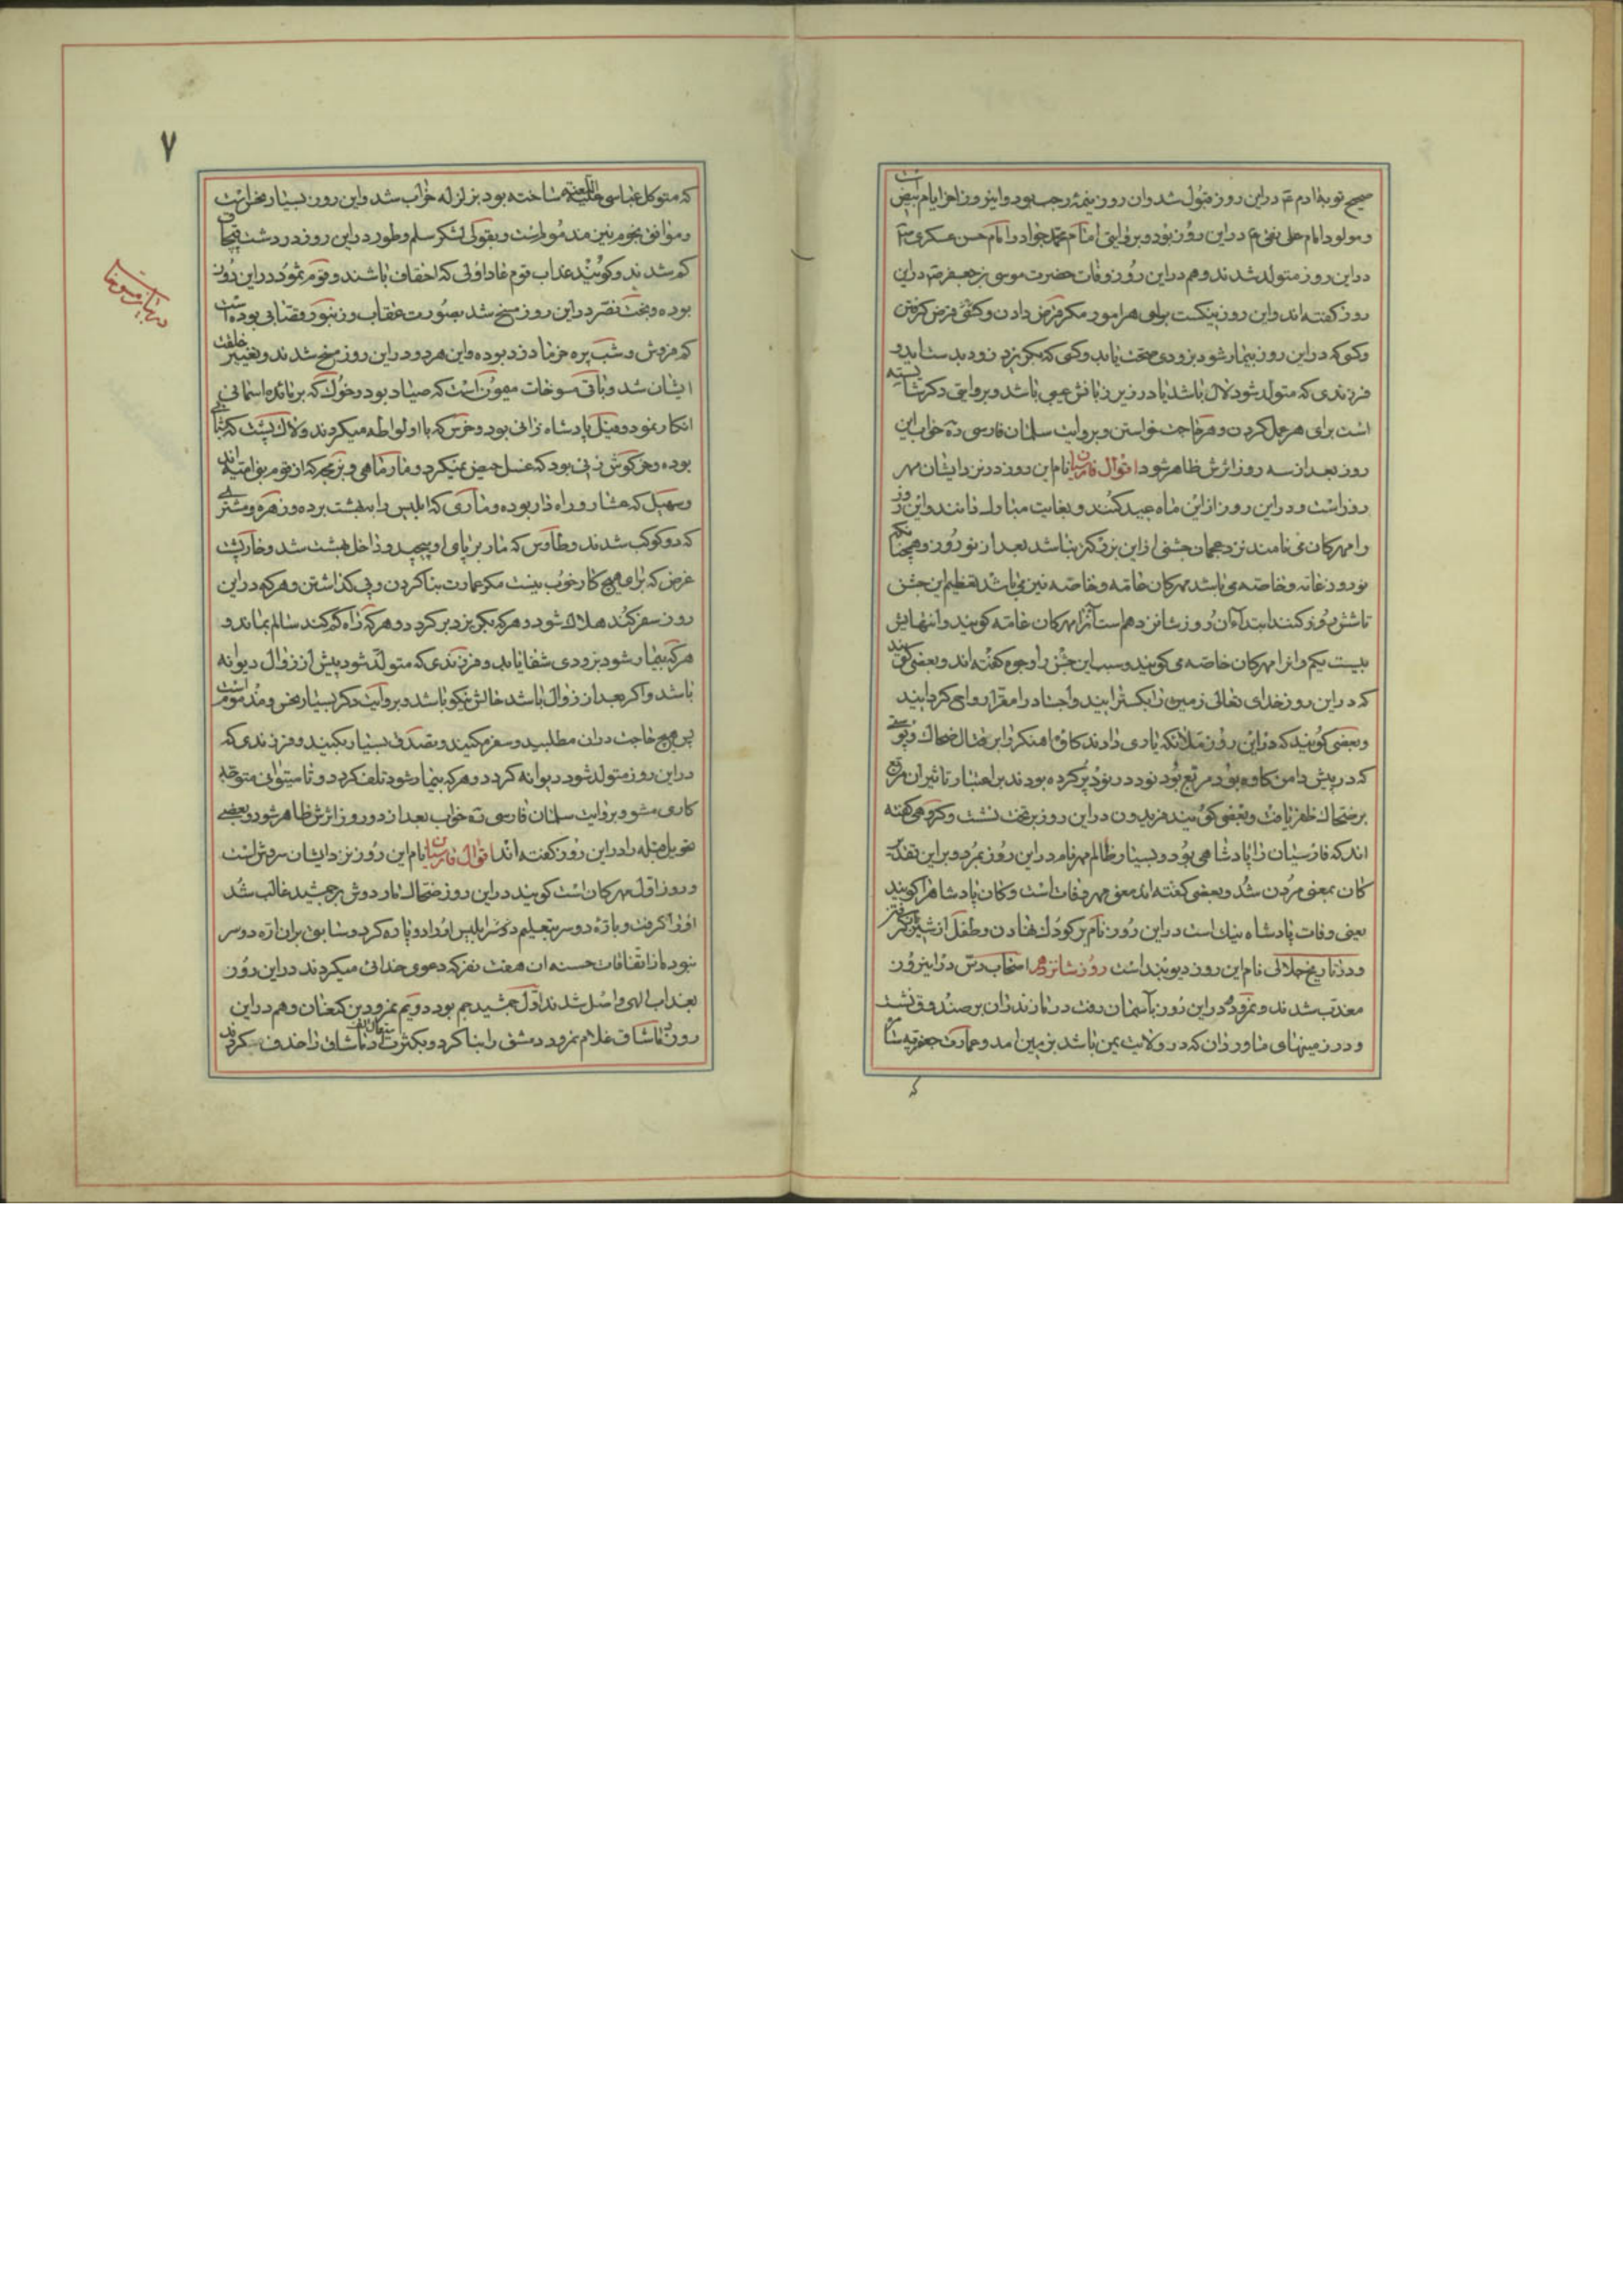 صحیح توبهٔ ادم ع دراین روز قبول شد وان روز نیمهٔ رجب بود واینروز اخر ایام بیض است
ومولود امام علی نقی ع دراین روز بود وبروایتی امام محمد جواد وامام حسن عسکری ع
دراین روز متولد شدند وهم دراین روز وفات حضرت موسی بن جعفر ع دراین
روز کفته اند واین روز نیکست برای هر امور مکر قرض دادن وکسی قرض کرفتن
وکسی که دراین روز بیمار شود بزودی صحت یابد وکسی که بکریزد زود بدست اید و
فرزندی که متولد شود لال باشد یا در زیر زبانش عیبی باشد وبروایتی دکر شایسته
است برای هر عمل کردن وهر حاجت خواستن وبروایت سلمان فارسی ره خواب این
روز بعد از سه روز اثرش ظاهر شود اقوال فارسیان نام این روز در نزد ایشان مهر
روز است ودراین روز ازاین ماه عید کنند وبغایت مبارک دانند واین روز
را مهرکان می نامند نزد عجمان جشنی ازاین بزرکتر نباشد بعد از نوروز وهمچنانکه
نوروز عامه وخاصه می باشد مهرکان عامه وخاصه نیز می باشد تعظیم این جشن
تا شش روز کنند ابتدأ ان روز شانزدهم است آنرا مهرکان عامه کویند وانتهایش
بیست یکم وانرا مهرکان خاصه می کویند وسبب این جشن را وجوه کفته اند وبعضی کویند
که دراین روز خدای تعالی زمین را بکسترانید واجساد را مقر ارواح کردانید
وبعضی کویند که دراین روز ملائکه یاری دادند کاوه اهنکر را بر قتال ضحاک وپوستی
که در پیش دامن کاوه بود مربع بود نود در نود پر کرده بودند بر اعتبار تاثیر ان مربع
بر ضحاک ظفر یافت وبعضی کویند فریدون دراین روز بر تخت نشست وکروهی کفته
اند که فارسیان را پادشاهی بود وبسیار ظالم مهر نام دراین روز بمرد وبراین تقدیر
کان بمعنی مردن شد وبعضی کفته اند معنی مهر وفات است وکان پادشاه را کویند
یعنی وفات پادشاه نیک است دراین روز نام بر کودک نهادن وطفل از شیر باز کرفتن
ودر تاریخ جلالی نام این روز دیوبند است روز شانزدهم اصحاب رس در اینروز
معذب شدند ونمرود در این روز بآسمان رفت در مازندران بر صندوق نشست
ودر زمینهای خاور زان که در ولایت یمن باشد بزمین امد وعمارت جعفریه سا
که
۷
که متوکل عباسی علیه اللعنه ساخته بود بزلزله خراب شد واین روز بسیار نحس است
وموافق نجوم نیز مذموم است وبقولی لشکر سلم وطور دراین روز در دشت قبچاق
کم شدند وکویند عذاب قوم عاد اولی که احقاف باشند وقوم ثمود دراین روز
بوده وبخت نصر دراین روز مسخ شد بصورت عقاب وزنبور قصابی بوده است
که فروش وشب پره خرما دزد بوده واین هر دو دراین روز مسخ شدند وتغییر خلقت
ایشان شد وباقی مسوخات میمون است که صیاد بود وخوک که بر مائده اسمانی
انکار نمود وفیل پادشاه زانی بود وخرس که با او لواطه میکردند ولاک پشت که
بوده وخرکوش زنی بود که غسل حیض نمیکرد ومارماهی که از قوم
وسهیل که عشار وراه دار بوده وماری که ابلیس را ببهشت برده وزهره ومشتری
که دو کوکب شدند وطاوس که مار بر پای او پیچید وداخل بهشت شد وخارپشت
غرض که برای هیچ کار خوب نیست مکر عمارت بنا کردن وپی کذاشتن وهر که دراین
روز سفر کند هلاک شود وهر که بکریزد بر کردد وهر که راه کم کند سالم بماند و
هر که بیمار شود بزودی شفا یابد وفرزندی که متولد شود پیش از زوال دیوانه
باشد واکر بعد از زوال باشد حالش نیکو باشد وبروایت دکر بسیار نحس ومذموم است
پس هیچ حاجت دران مطلبید وسفر مکنید وتصدق بسیار بکنید وفرزندی که
دراین روز متولد شود دیوانه کردد وهر که بیمار شود تلف کردد وتا میتوانی متوجه
کاری مشو وبروایت سلمان فارسی ره خواب بعد از دو روز اثرش ظاهر شود وبعضی
تحویل قبله را دراین روز کفته اند اقوال فارسیان نام این روز نزد ایشان سروش است
وروز اول مهرکان است کویند دراین روز ضحاک ماردوش بر جمشید غالب شد
اورا کرفت وباره دو سر بتعلیم ابلیس او را دو پاره کرد وسابق بران اره دو سر
نبود واز اتفاقات حسنه ان هفت نفر که دعوی خدائی میکردند دراین روز
بعذاب الهی واصل شدند اول جمشید جم بود دویم نمرود بن کنعان وهم دراین
روز دماشاق غلام نمرود دمشق را بنا کرد وبکثرت استعمال الف دماشاق را حذف کردند